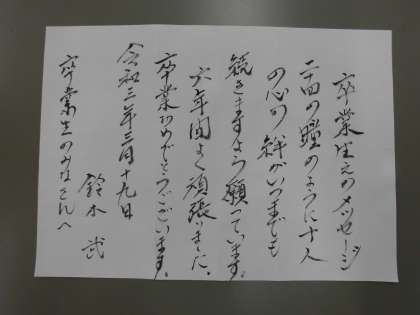 卒業生へのメッセージ
二十四の瞳のように十人
の心の絆がいつまでも
続きますよう願っています。
六年間よく頑張りました。
卒業おめでとうございます。
令和三年三月十九日
鈴木 武
卒業生のみなさんへ